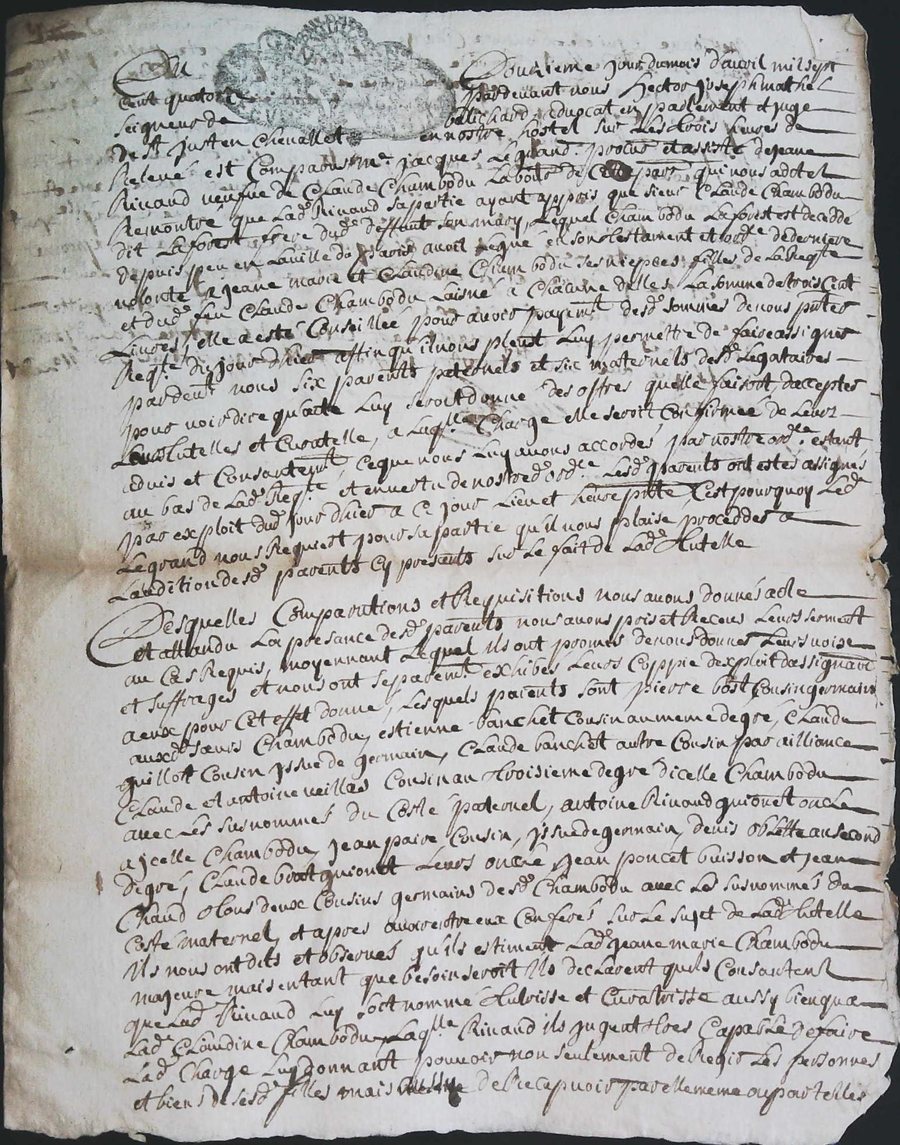 Du Douzieme jour du mois d'avril mil sept
cent quatorze pardevant nous hector joseph mathel
seigneur de bellichard advocat en parlement et juge
de St justen Chevallet en nostre hostel sur les trois heures de
relevé est comparu me. jacques legrand procur et assisté de jeane
Rinaud veufve de Claude Chambodu qui nous a
Remontre que lade Rinaud sa partie ayant appris que sieur Claude Chambodu
dit laforest frere dude deffunt son mary, lequel Chambodu laforest est decedé
depuis peu en la ville de paris avoit legué en son testament et de derniere
volonté a jeane marie et Claudine Chambodu ses niepces filles de la Reqte
et dude feu Claude Chambodu laisné a chacune delles la somme de trois cent
livres, elle a esté conseillée pour avoir payemt desde sommes de nous pnter
Reqte du jour d'hier affin qu'il nous pleut luy permettre de faire assigner
pardevt nous six parents paternels et six maternels desde legataires
pour voir dire qu'acte luy seroit donné des offres quelle faisoit d'accepter
tutelles et curatelle, a laqlle charge elle seroit confirmée de leurs
advis et consantemt, ce que nous luy avons accordé par nostre ordce estant
au bas de lade Reqte et en vertu de nostrede ordce lesde parents ont estés assignés
par exploit dude jour d'hier a ce jour lieu et heure pnte, c'est pourquoy lede
legrand nous Requiert pour sa partie qu'il nous plaise proceder a
l'audition desde parents cy presents sur le fait de lade tutelle
Desquelles comparutions et Requisitions nous avons donné acte
et attandu la presance desde parents nous avons pris et Receus leurs serment
au cas Requis, moyennant lequel ils ont promis de nous donner leurs voix
et suffrages et nous ont separemt exhibés leurs coppie d'exploit d'assignaon
a eux pour cet effet donné, lesquels parents sont pierre bost cousin germain
auxde sœurs Chambodu, estienne banchet cousin au meme degré, Claude
guillot cousin issue de germain, Claude banchet autre cousin par ailliance
Claude et antoine veillas cousin au troisieme degré dicelle Chambodu
avec les susnommés du costé paternel, antoine Rinaud qui est oncle
a jcelle Chambodu, jean paire cousin, jssue de germain, denis oblette au second
degré, Claude leurs oncle, jean poncet buisson et jean
Chaud tous deux cousins germains desde Chambodu avec les susnommés du
costé maternel, et apres avoir entre eux conferés sur le sujet de lade tutelle
ils nous ont dits et observés qu'ils estiment lade jeane marie Chambodu
majeure mais en tant que besoin seroit ils declarent quils consantent
que lade Rinaud luy soit nommé tutrisse et curatrisse aussy bien qu'a
lade Claudine Chambodu, laqlle Rinaud ils jugent tres capable de faire
lade charge luy donnant pouvoir non seulement de Regir les personnes
et biens de sesde filles mais de Recepvoir par elle meme ou par telles